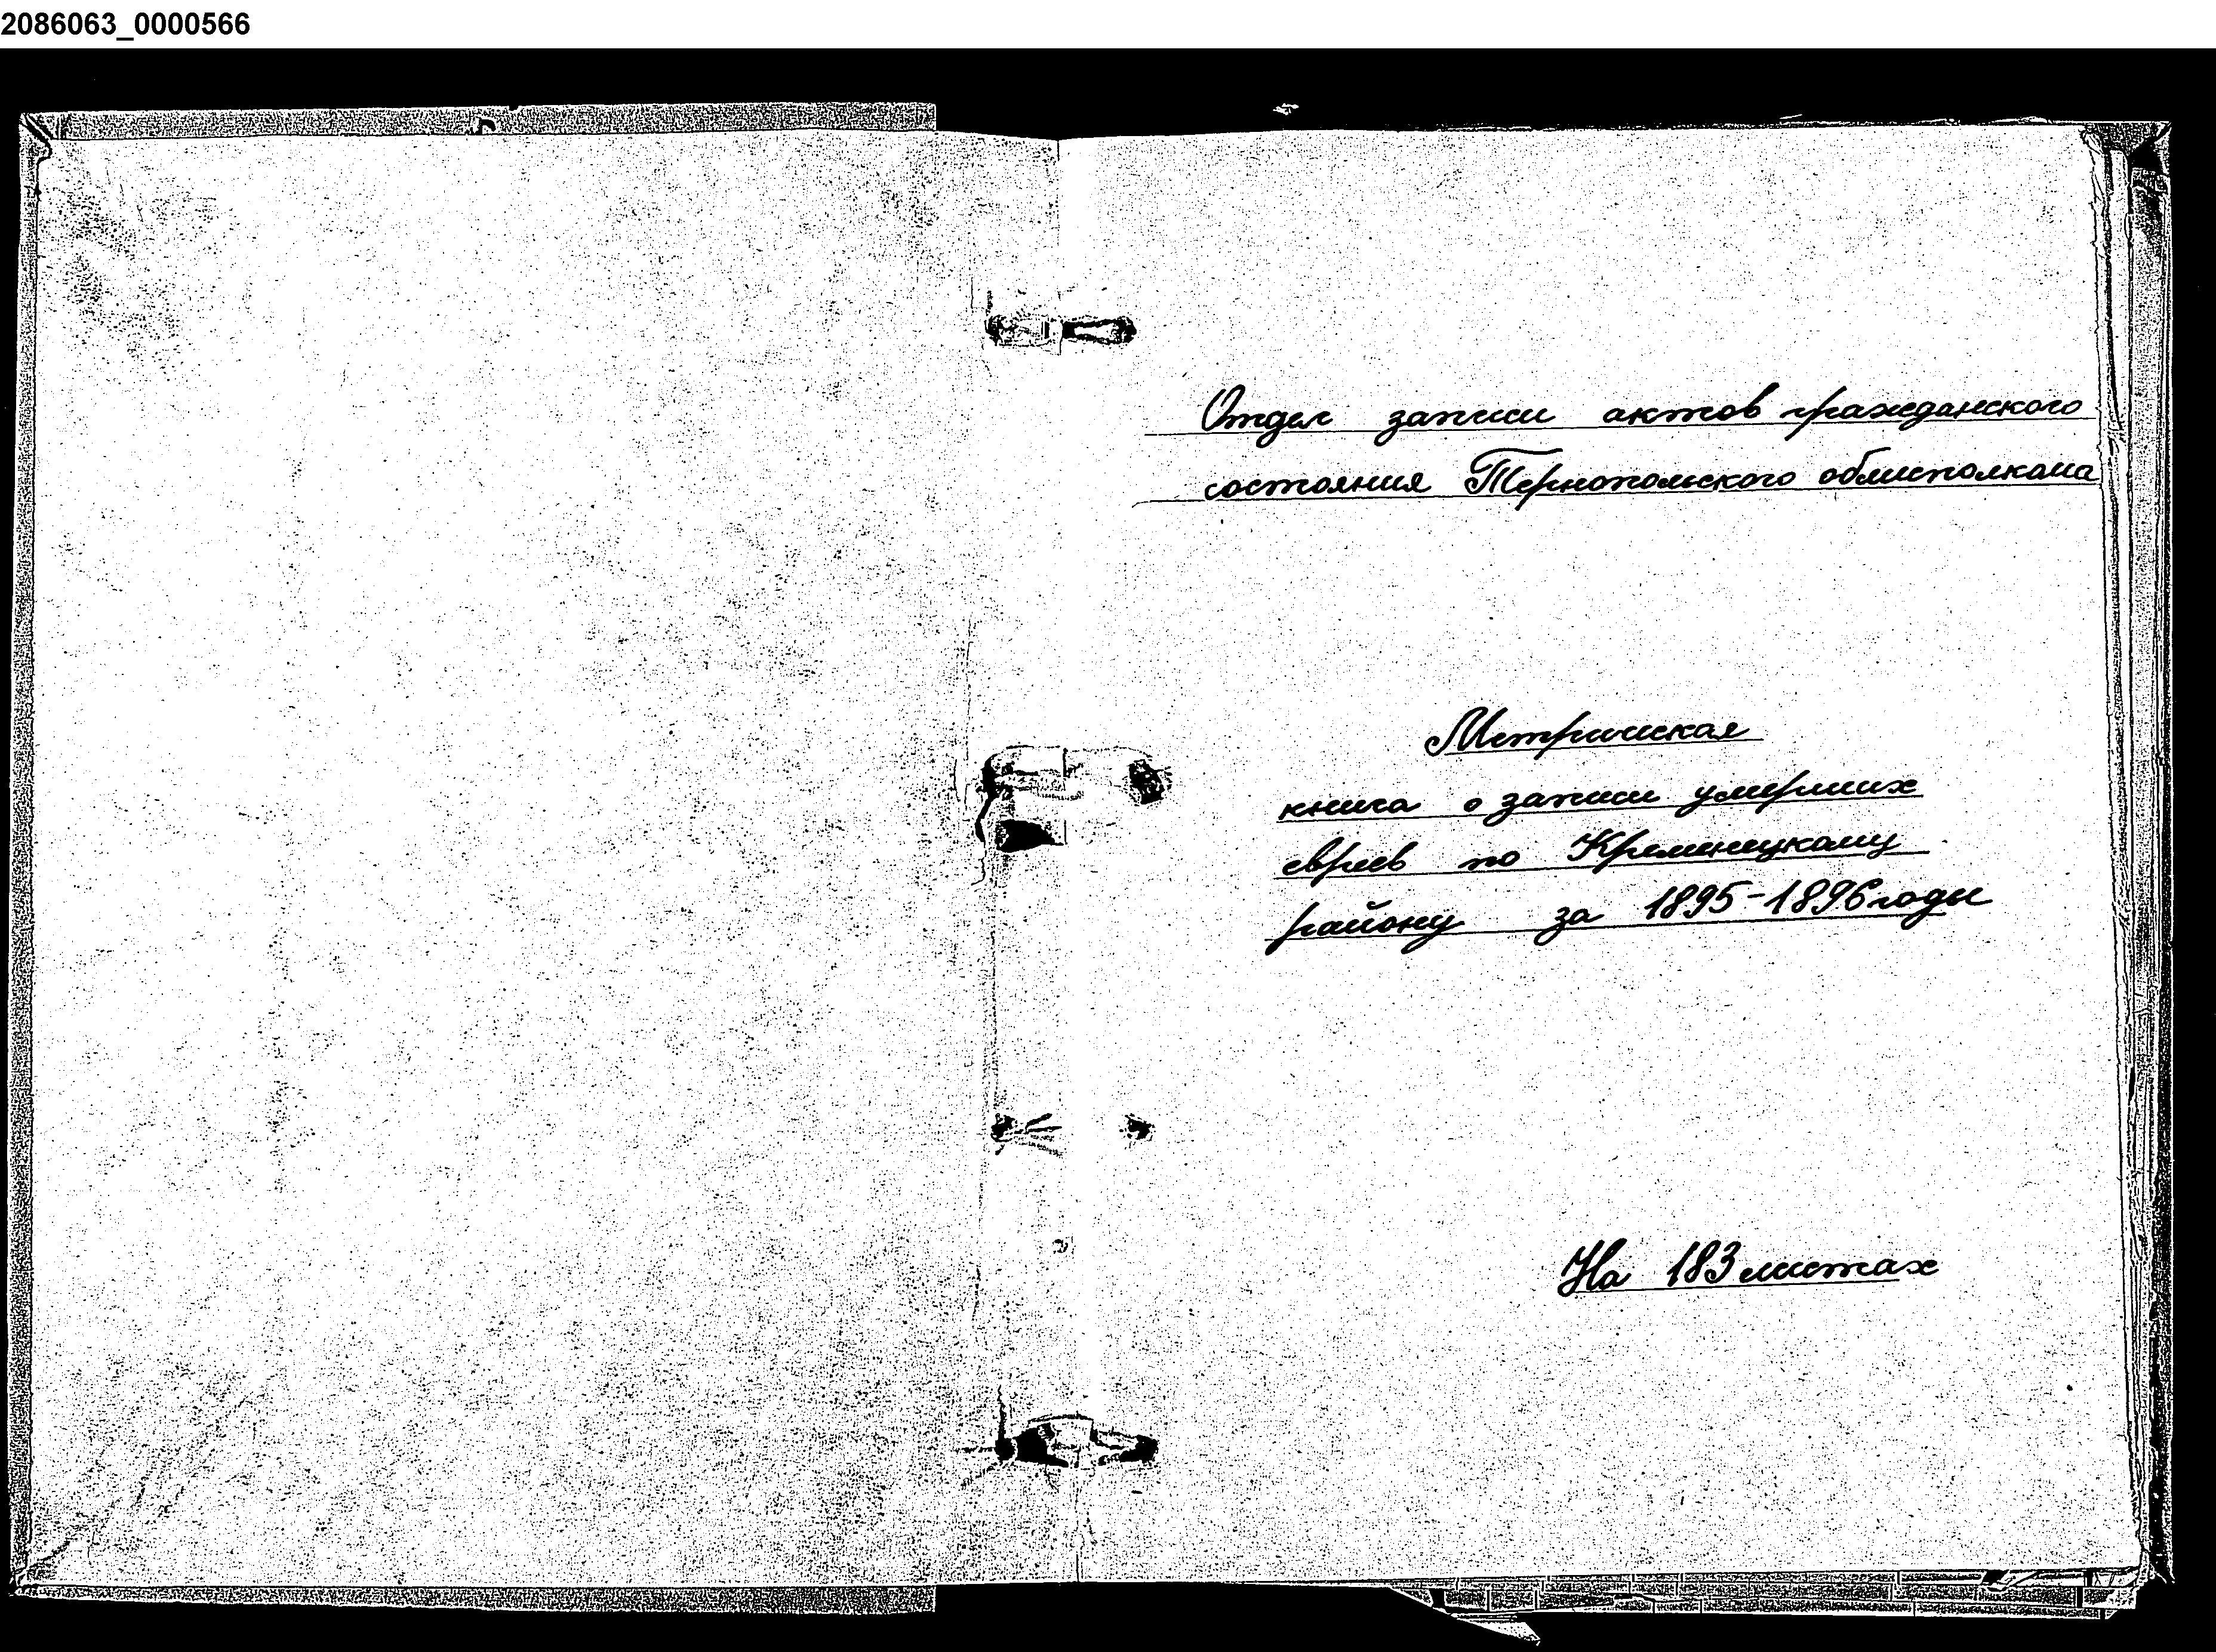 2086063_0000566
Отдел записи актов гражданского
состояния Тернопольского облисполкома
Метрическая
книга о записи умерших
евреев по Кременецкому
району за 1895-1896 годы
На 183 листах